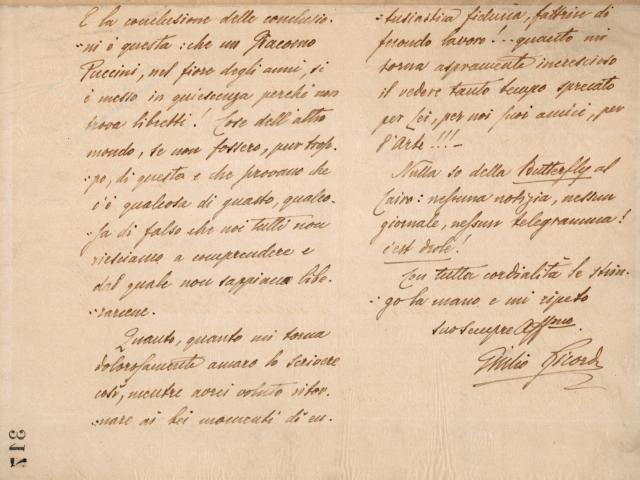 E la conclusione delle conclusio-
-ni è questa: che un Giacomo
Puccini, nel fiore degli anni, si
è messo in quiescenza perchè non
trova libretti! Cose dell'altro
mondo, se non fossero, pur trop-
-po, di questo e che provano che
c'è qualcosa di guasto, qualco-
-sa di falso che noi tutti non
riesciamo a comprendere e
dal quale non sappiamo libe-
-rarcene.
Quanto, quanto mi torna
dolorosamente amaro lo scrivere
così, mentre avrei voluto ritor-
-nare ai bei momenti di en-
-tusiastica fiducia, fattrice di
fecondo lavoro!.. quanto mi
torna aspramente increscioso
il vedere tanto tempo sprecato
per Lei, per noi suoi amici, per
l'Arte!!!–
Nulla so della Butterfly al
Cairo: nessuna notizia, nessun
giornale, nessun telegramma!
c'est drôle!
Con tutta cordialità le strin-
-go la mano e mi ripeto
suo sempre Affmo.
Giulio Ricordi
317